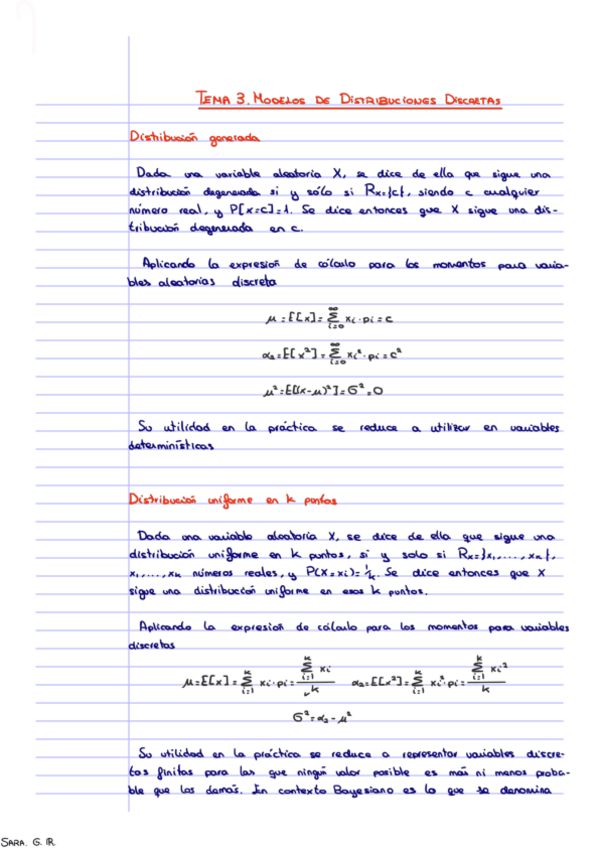 TEMA 3. MODELOS DE DISTRIBUCIONES DISCRETAS
Distribución generada
Dada una variable aleatoria X, se dice de ella que sigue una
distribución degenerada si y sólo si Rx={c}, siendo c cualquier
número real, y P[x=c]=1. Se dice entonces que X sigue una dis-
tribución degenerada en c.
Aplicando la expresión de cálculo para los momentos para varia-
bles aleatorias discreta
μ = E[x] = ∑_{i=0}^{∞} xi·pi = c
α2 = E[x²] = ∑_{i=0}^{∞} xi²·pi = c²
μ² = E[(x-μ)²] = σ² = 0
Su utilidad en la práctica se reduce a utilizar en variables
determinísticas
Distribución uniforme en k puntos
Dada una variable aleatoria X, se dice de ella que sigue una
distribución uniforme en k puntos, si y solo si Rx={x1,...,xk},
x1,...,xk números reales, y P(X=xi)=1/k. Se dice entonces que X
sigue una distribución uniforme en esos k puntos.
Aplicando la expresión de cálculo para los momentos para variables
discretas
μ = E[x] = ∑_{i=1}^{k} xi·pi = ∑_{i=1}^{k} xi / k   α2 = E[x²] = ∑_{i=1}^{k} xi²·pi = ∑_{i=1}^{k} xi² / k
σ² = α2 - μ²
Su utilidad en la práctica se reduce a representar variables discre-
tas finitas para las que ningún valor posible es más ni menos proba-
ble que los demás. En contexto Bayesiano es lo que se denomina
SARA. G. R.